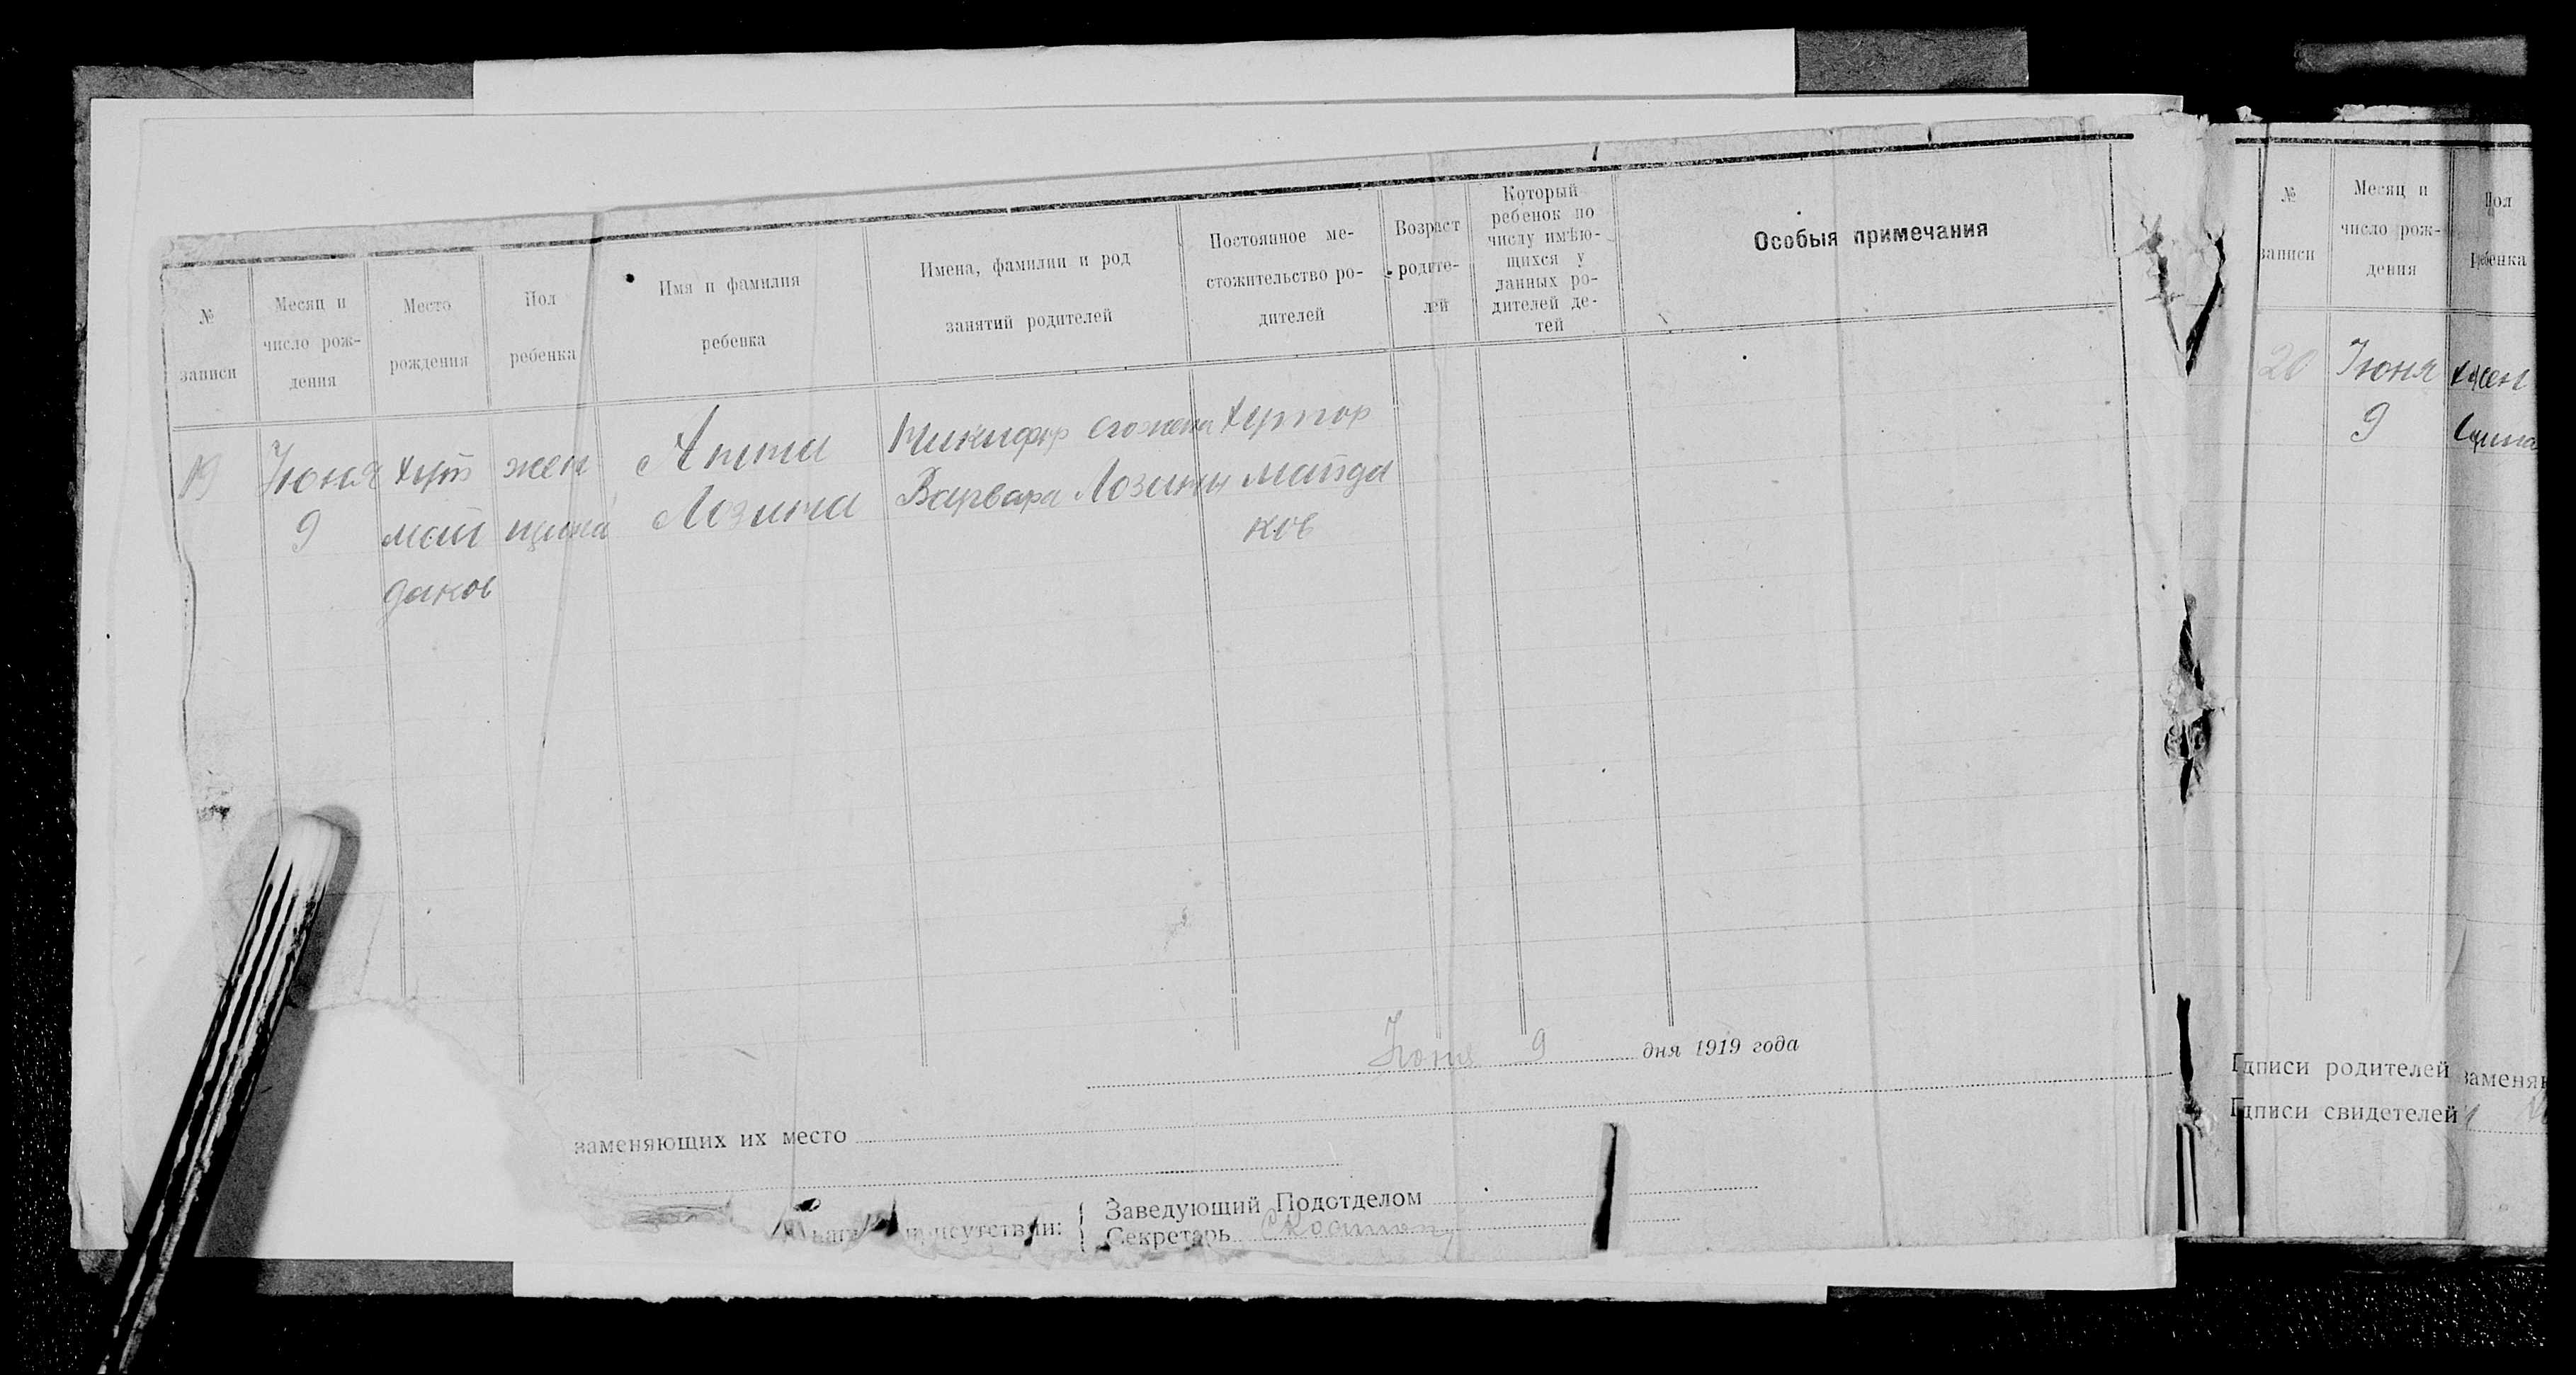 № записи
Месяц и число рождения
Место рождения
Пол ребенка
Имя и фамилия ребенка
Имена, фамилии и род занятий родителей
Постоянное местожительство родителей
Возраст родителей
Который ребенок по числу имѣющихся у данных родителей детей
Особыя примечания
19
Июня
9
хут
май
даков
жен
щина
Анна
Лозина
Никифор сожена
Варвара Лозины
хутор
майда
ков
Июня 9 дня 1919 года
заменяющих их место
Заведующий Подотделом
Секретарь
№ записи
Месяц и число рождения
Пол
20
Июня
9
жен
щина
родителей
свидетелей